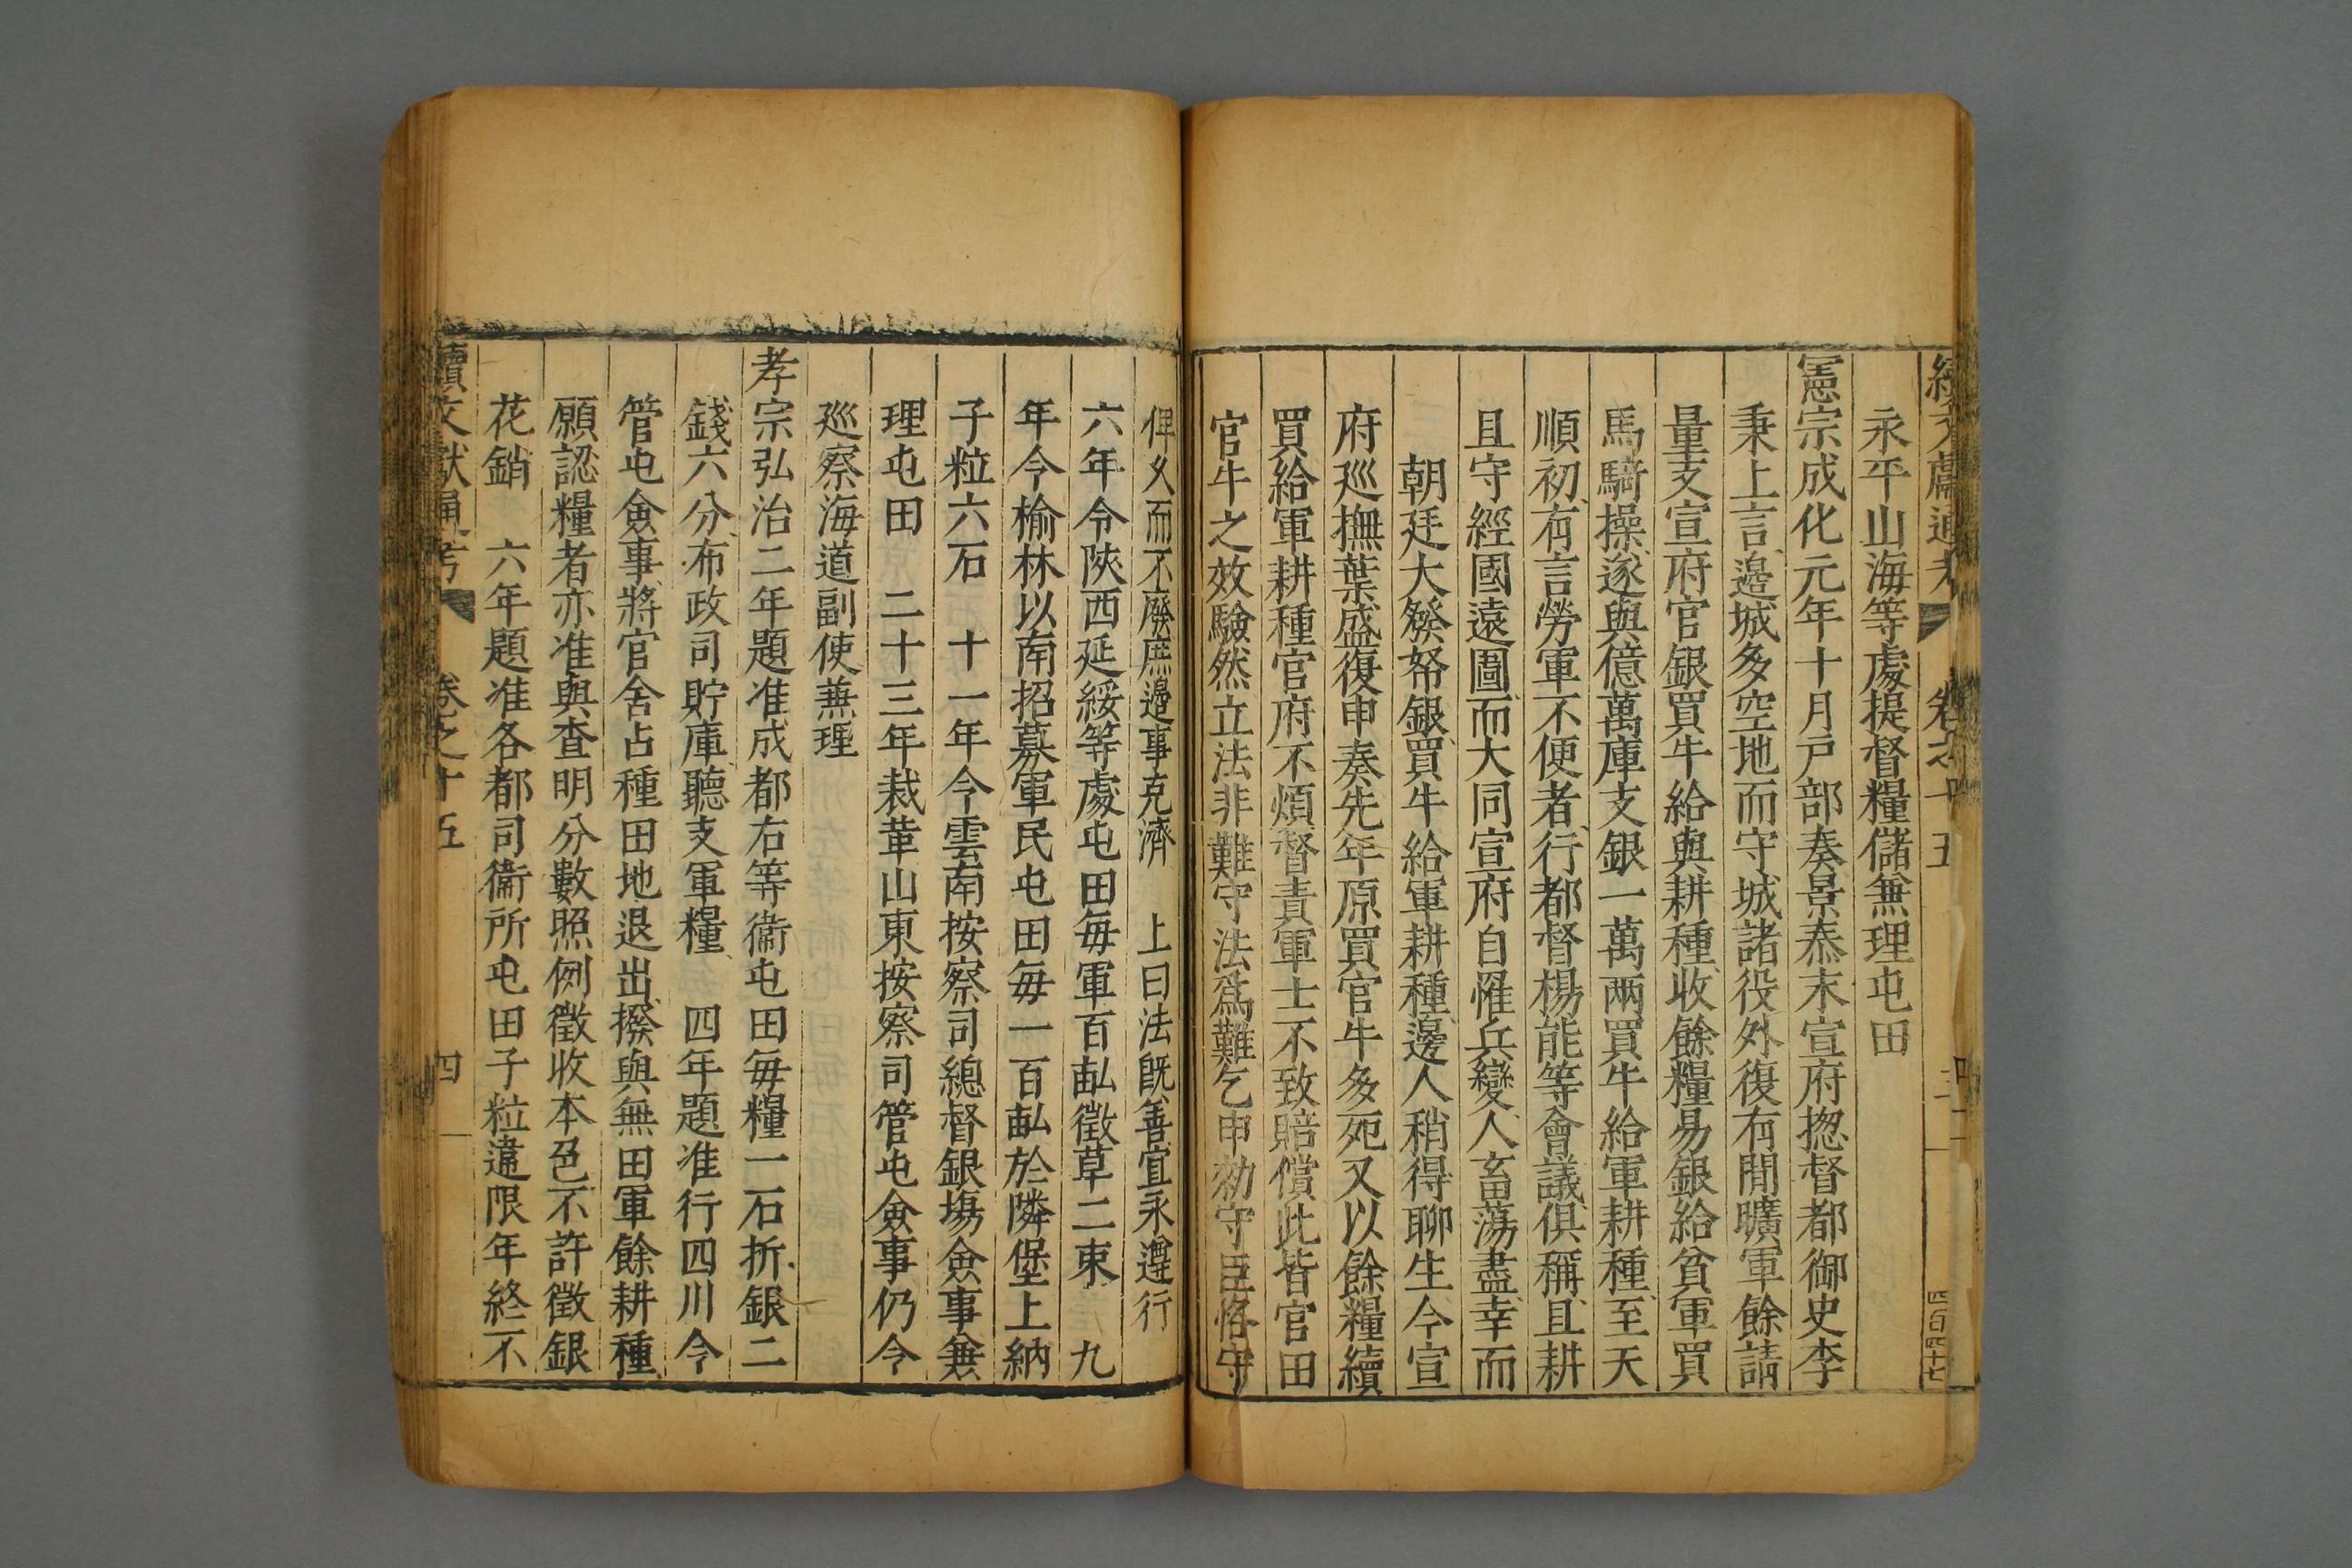 續文獻通考 卷之十五
四百四十七
永平山海等處提督糧儲兼理屯田
憲宗成化元年十月戸部奏景泰末宣府揔督都御史李
秉上言邉城多空地而守城諸役外復有閒曠軍餘請
量支宣府官銀買牛給與耕種收餘糧易銀給貧軍買
馬騎操遂與億萬庫支銀一萬兩買牛給軍耕種至天
順初有言勞軍不便者行都督楊能等會議俱稱且耕
且守經國遠圖而大同宣府自罹兵變人畜蕩盡幸而
朝廷大發帑銀買牛給軍耕種邊人稍得聊生今宣
府巡撫葉盛復申奏先年原買官牛多死又以餘糧續
買給軍耕種官府不煩督責軍士不致賠償此皆官田
官牛之效驗然立法非難守法爲難乞申勑守臣恪守
俾久而不廢庶邉事克濟 上曰法旣善宜永遵行
六年令陜西延綏等處屯田每軍百畝徵草二束 九
年令榆林以南招募軍民屯田每一百畝於隣堡上納
子粒六石 十一年令雲南按察司總督銀塲僉事兼
理屯田 二十三年裁革山東按察司管屯僉事仍令
巡察海道副使兼理
孝宗弘治二年題准成都右等衞屯田每糧一石折銀二
錢六分布政司貯庫聽支軍糧 四年題准行四川令
管屯僉事將官舍占種田地退出撥與無田軍餘耕種
願認糧者亦准與查明分數照例徵收本色不許徵銀
花銷 六年題准各都司衞所屯田子粒違限年終不
續文獻通考 卷之十五 四